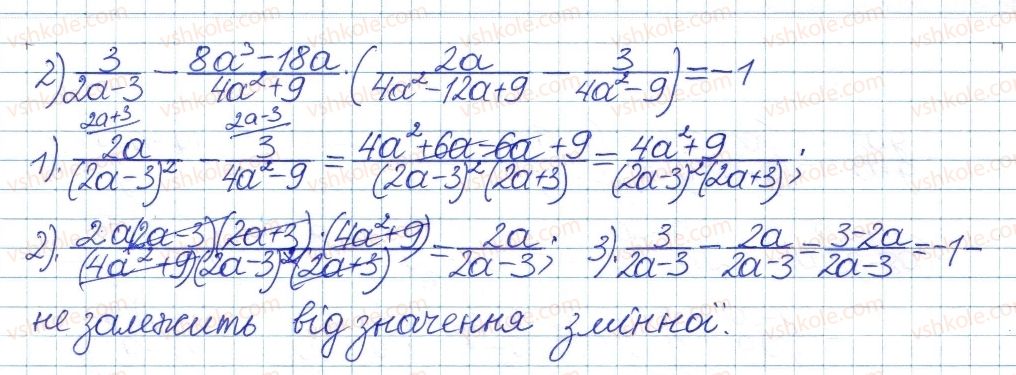 2) 3/(2a-3) - (8a³-18a)/(4a²+9) · (2a/(4a²-12a+9) - 3/(4a²-9)) = -1
1). 2a/(2a-3)² (2a+3) - 3/(4a²-9) (2a-3) = (4a²+6a-6a+9)/((2a-3)²(2a+3)) = (4a²+9)/((2a-3)²(2a+3));
2). (2a(2a-3)(2a+3)·(4a²+9))/((4a²+9)(2a-3)²(2a+3)) = 2a/(2a-3); 3). 3/(2a-3) - 2a/(2a-3) = (3-2a)/(2a-3) = -1 -
не залежить від значення змінної.